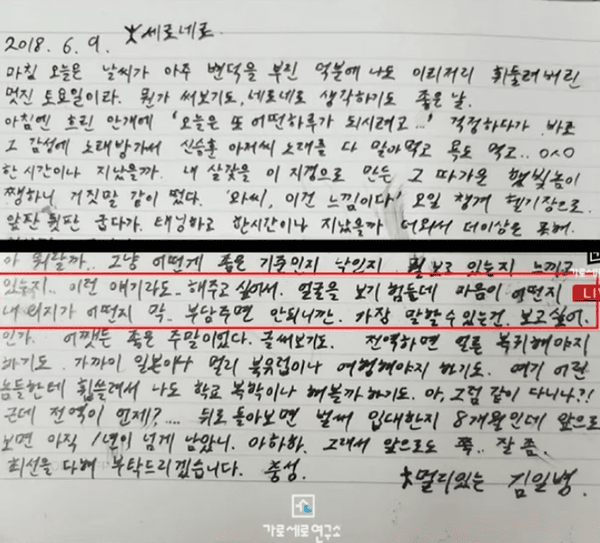 2018. 6. 9. ★세로네로
마침 오늘은 날씨가 아주 변덕을 부린 덕분에 나도 이리저리 휘둘려버린
멋진 토요일이라. 뭔가 써보기도, 네로네로 생각하기도 좋은 날.
아침엔 흐린 안개에 '오늘은 또 어떤하루가 되시려고...' 걱정하다가 바로
그 감성에 노래방가서 신승훈 아저씨 노래를 다 말아먹고 욕도 먹고.. 0x0
한 시간이나 지났을까. 내 살갗을 이 지경으로 만든 그 따가운 햇빛놈이
쨍하니 거짓말 같이 떴다. '와씨, 이건 느낌이다' 오일 챙겨 헬기장으로.
앞판 뒷판 굽다가. 태닝하고 한시간이나 지났을까 더워서 더이상은 못해.
아 뭐랄까.. 그냥 어떻게 좋은 기준인지 낙인지 보고 있는지 느끼고
있는지.. 이런 얘기라도.. 해주고 싶어서. 얼굴을 보기 힘든데 마음이 어떤지
LI
내 의지가 어떤지 막.. 부담주면 안되니깐. 가장 말할 수 있는건. 보고싶어.
인가. 어쨌든 좋은 주말이었다. 글써보기도. 전역하면 얼른 복귀해야지
하기도. 가까이 일본이나 멀리 북유럽이나 여행해야지 하기도. 여기 어린
놈들한테 휩쓸려서 나도 학교 복학이나 해볼까하기도. 아, 그럼 같이 다니나?!
근데 전역이 언제?.... 뒤로 돌아보면 벌써 입대한지 8개월인데 앞으로
보면 아직 1년이 넘게 남았니. 아하하. 그래서 앞으로도 쭉.. 잘 좀
최선을 다해 부탁드리겠습니다. 충성. 멀리있는 김일병.
가로세로연구소